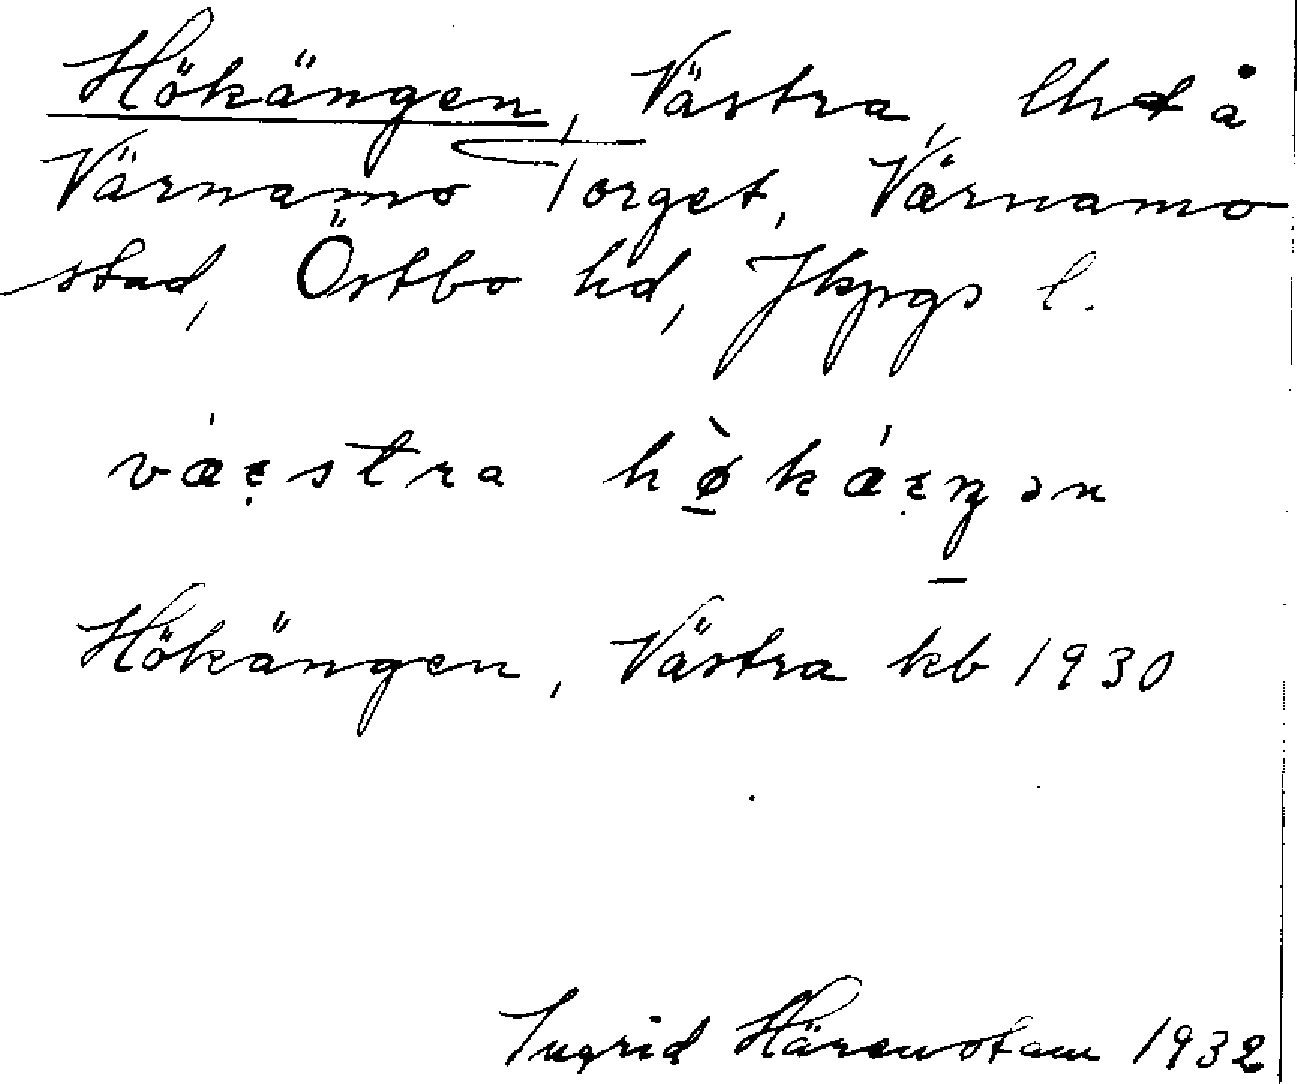 Hökängen, Västra, lhd å
Värnamo Torget, Värnamo
stad, Östbo hd, Jkpgs l.
västra hø̀kǽŋən
Hökängen, Västra kb 1930
Ingrid Härenstam 1932